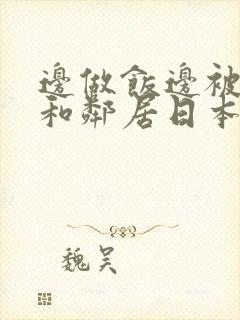 邊做飯邊被
和鄰居日本
魏昊